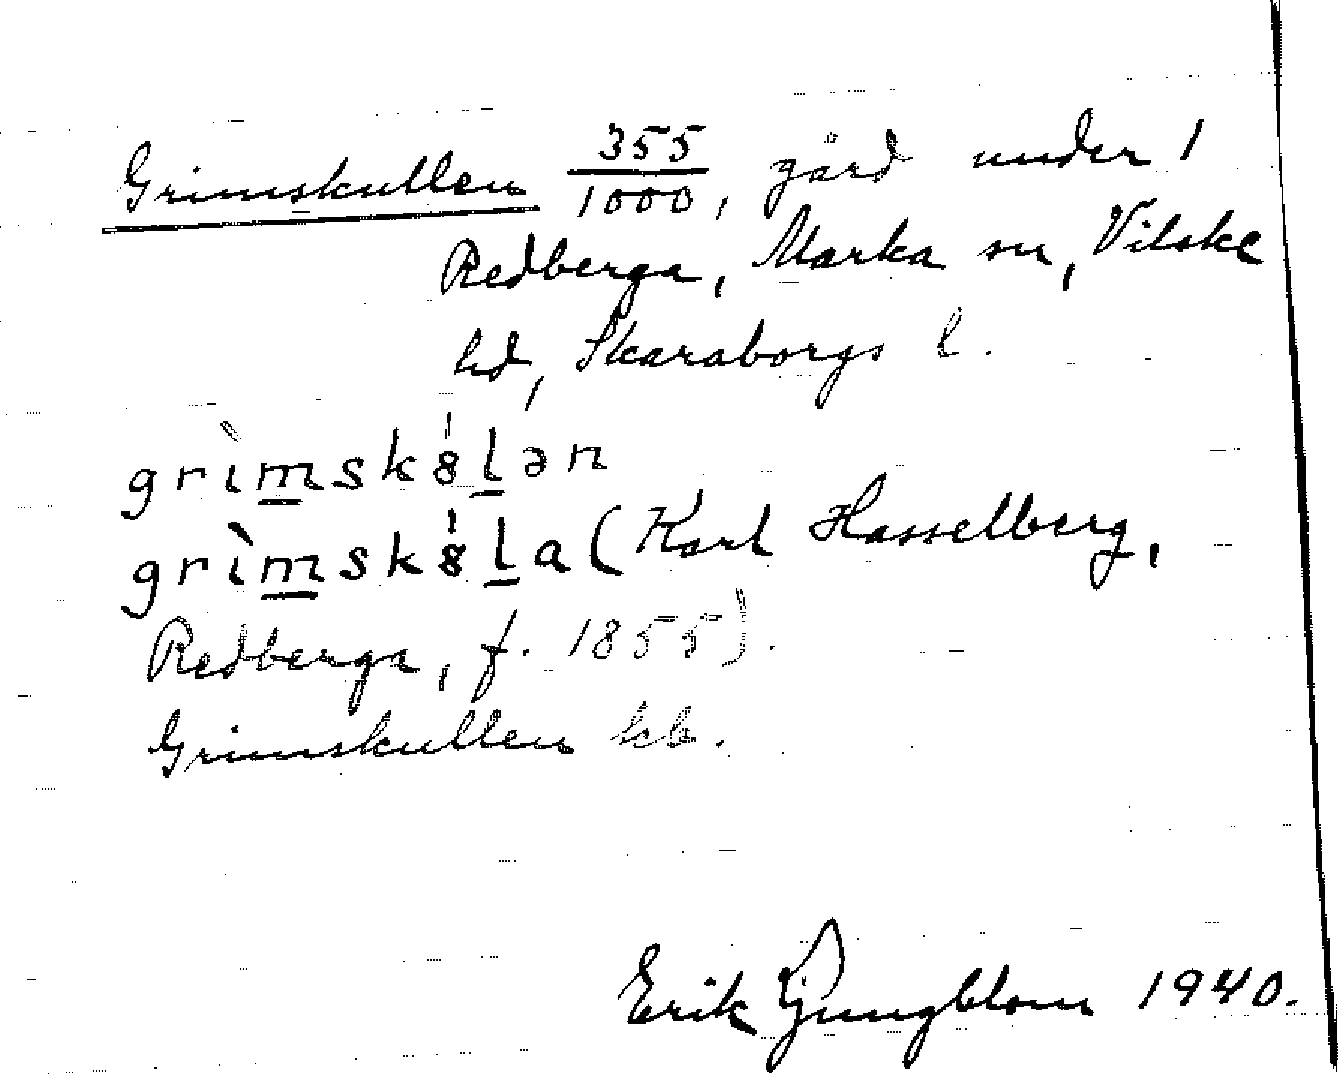 Grimskullen 355/1000, gård under 1
Redberga, Marka sn, Vilske
hd, Skaraborgs l.
grìm̲sk8̍l̲ən
grìm̲sk8̍l̲a (Karl Hasselberg,
Redberga, f. 1855).
Grimskullen kb.
Erik Ljungblom 1940.